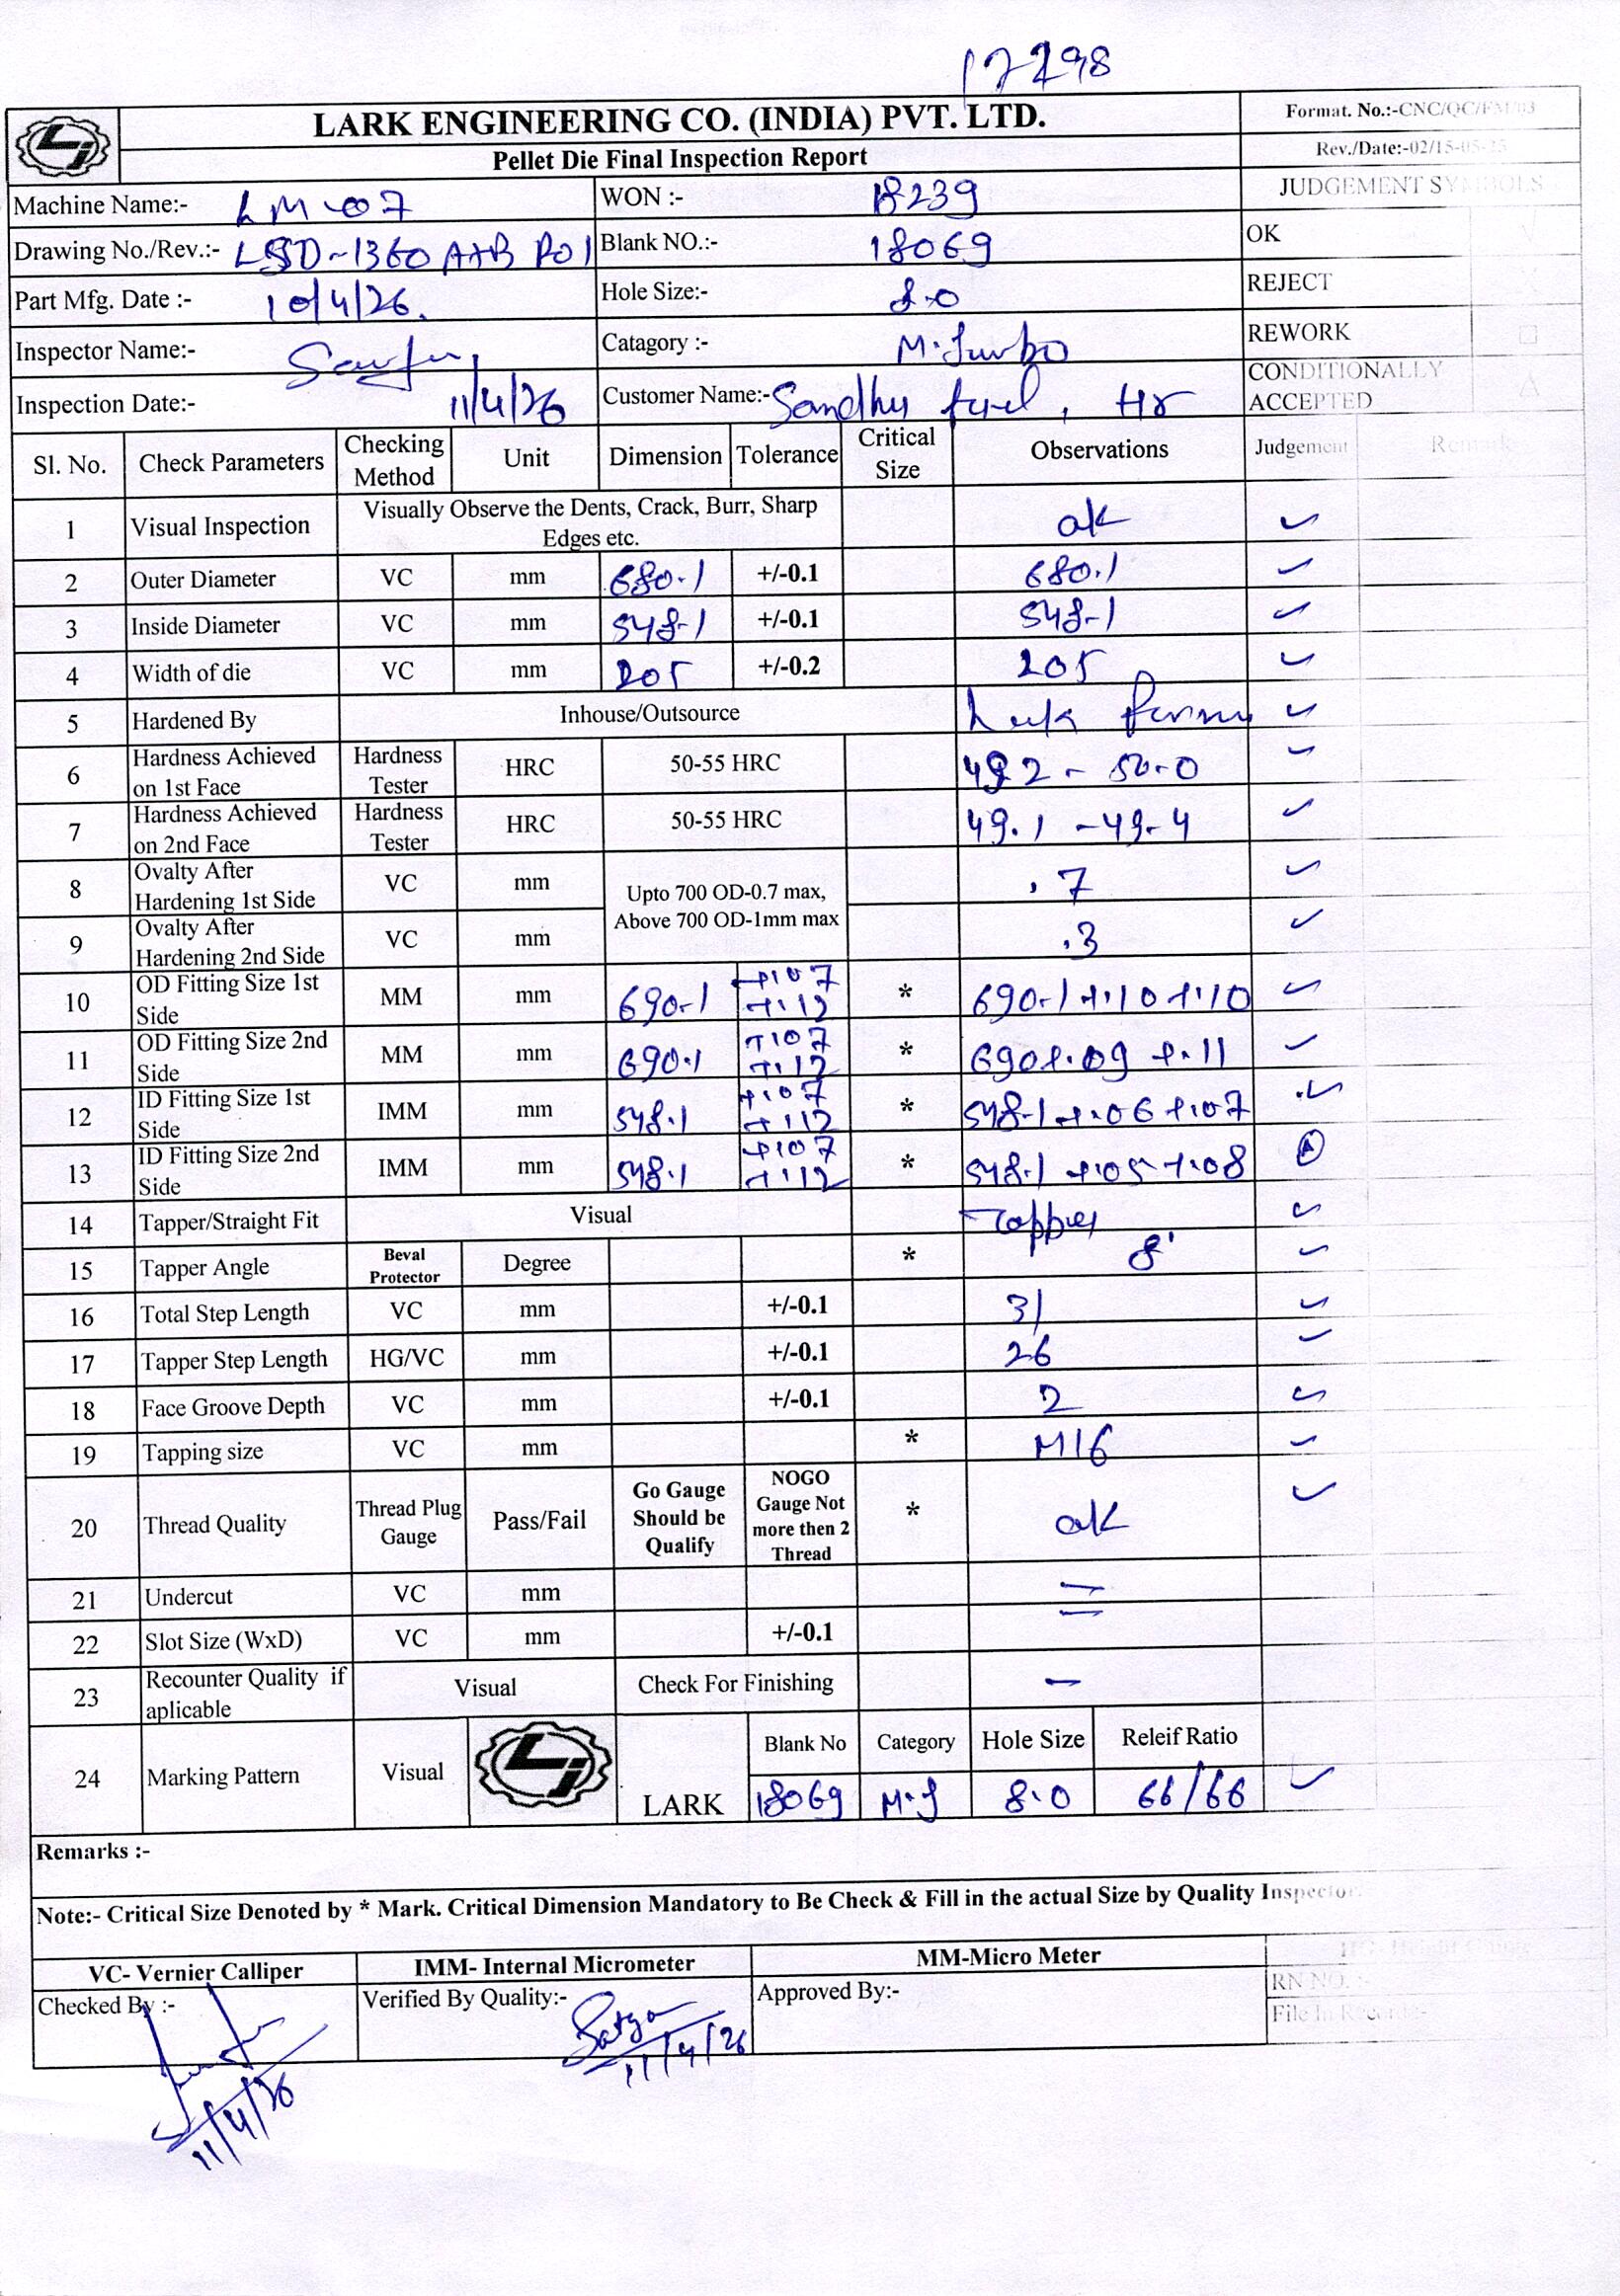 17298
LARK ENGINEERING CO. (INDIA) PVT. LTD.
Format. No.:-CNC/QC/FM/03
Pellet Die Final Inspection Report
Rev./Date:-02/15-05-25
Machine Name:- LM-07 WON :- 18239 JUDGEMENT SYMBOLS
Drawing No./Rev.:- LSSD-1360 A+B R01 Blank NO.:- 18069 OK √
Part Mfg. Date :- 10/4/26. Hole Size:- 8.0 REJECT
Inspector Name:- Catagory :- M.Jumbo REWORK □
Inspection Date:- 11/4/26 Customer Name:- Sandhu fuel, Hr CONDITIONALLY ACCEPTED △
Sl. No. Check Parameters Checking Method Unit Dimension Tolerance Critical Size Observations Judgement Remarks
1 Visual Inspection Visually Observe the Dents, Crack, Burr, Sharp Edges etc. ok ✓
2 Outer Diameter VC mm 680.1 +/-0.1 680.1 ✓
3 Inside Diameter VC mm 548.1 +/-0.1 548.1 ✓
4 Width of die VC mm 205 +/-0.2 205 ✓
5 Hardened By Inhouse/Outsource ✓
6 Hardness Achieved on 1st Face Hardness Tester HRC 50-55 HRC 49.2 - 50.0 ✓
7 Hardness Achieved on 2nd Face Hardness Tester HRC 50-55 HRC 49.1 - 49.4 ✓
8 Ovalty After Hardening 1st Side VC mm Upto 700 OD-0.7 max, Above 700 OD-1mm max .7 ✓
9 Ovalty After Hardening 2nd Side VC mm .3 ✓
10 OD Fitting Size 1st Side MM mm 690.1 +.07 +.12 * 690.1 +.10 +.10 ✓
11 OD Fitting Size 2nd Side MM mm 690.1 +.07 +.12 * 690+.09 +.11 ✓
12 ID Fitting Size 1st Side IMM mm 548.1 +.07 +.12 * 548.1 +.06 +.07 ✓
13 ID Fitting Size 2nd Side IMM mm 548.1 +.07 +.12 * 548.1 +.05 +.08
14 Tapper/Straight Fit Visual Tapper ✓
15 Tapper Angle Beval Protector Degree * 8' ✓
16 Total Step Length VC mm +/-0.1 31 ✓
17 Tapper Step Length HG/VC mm +/-0.1 26 ✓
18 Face Groove Depth VC mm +/-0.1 2 ✓
19 Tapping size VC mm * M16 ✓
20 Thread Quality Thread Plug Gauge Pass/Fail Go Gauge Should be Qualify NOGO Gauge Not more then 2 Thread * ok ✓
21 Undercut VC mm -
22 Slot Size (WxD) VC mm +/-0.1 -
23 Recounter Quality if aplicable Visual Check For Finishing -
24 Marking Pattern Visual LARK Blank No Category Hole Size Releif Ratio
18069 M.J 8.0 66/66 ✓
Remarks :-
Note:- Critical Size Denoted by * Mark. Critical Dimension Mandatory to Be Check & Fill in the actual Size by Quality Inspector.
VC- Vernier Calliper IMM- Internal Micrometer MM-Micro Meter HG- Height Gauge
Checked By :- Verified By Quality:- Satya Approved By:- RN NO. :-
File In Record:-
11/4/26
11/4/26